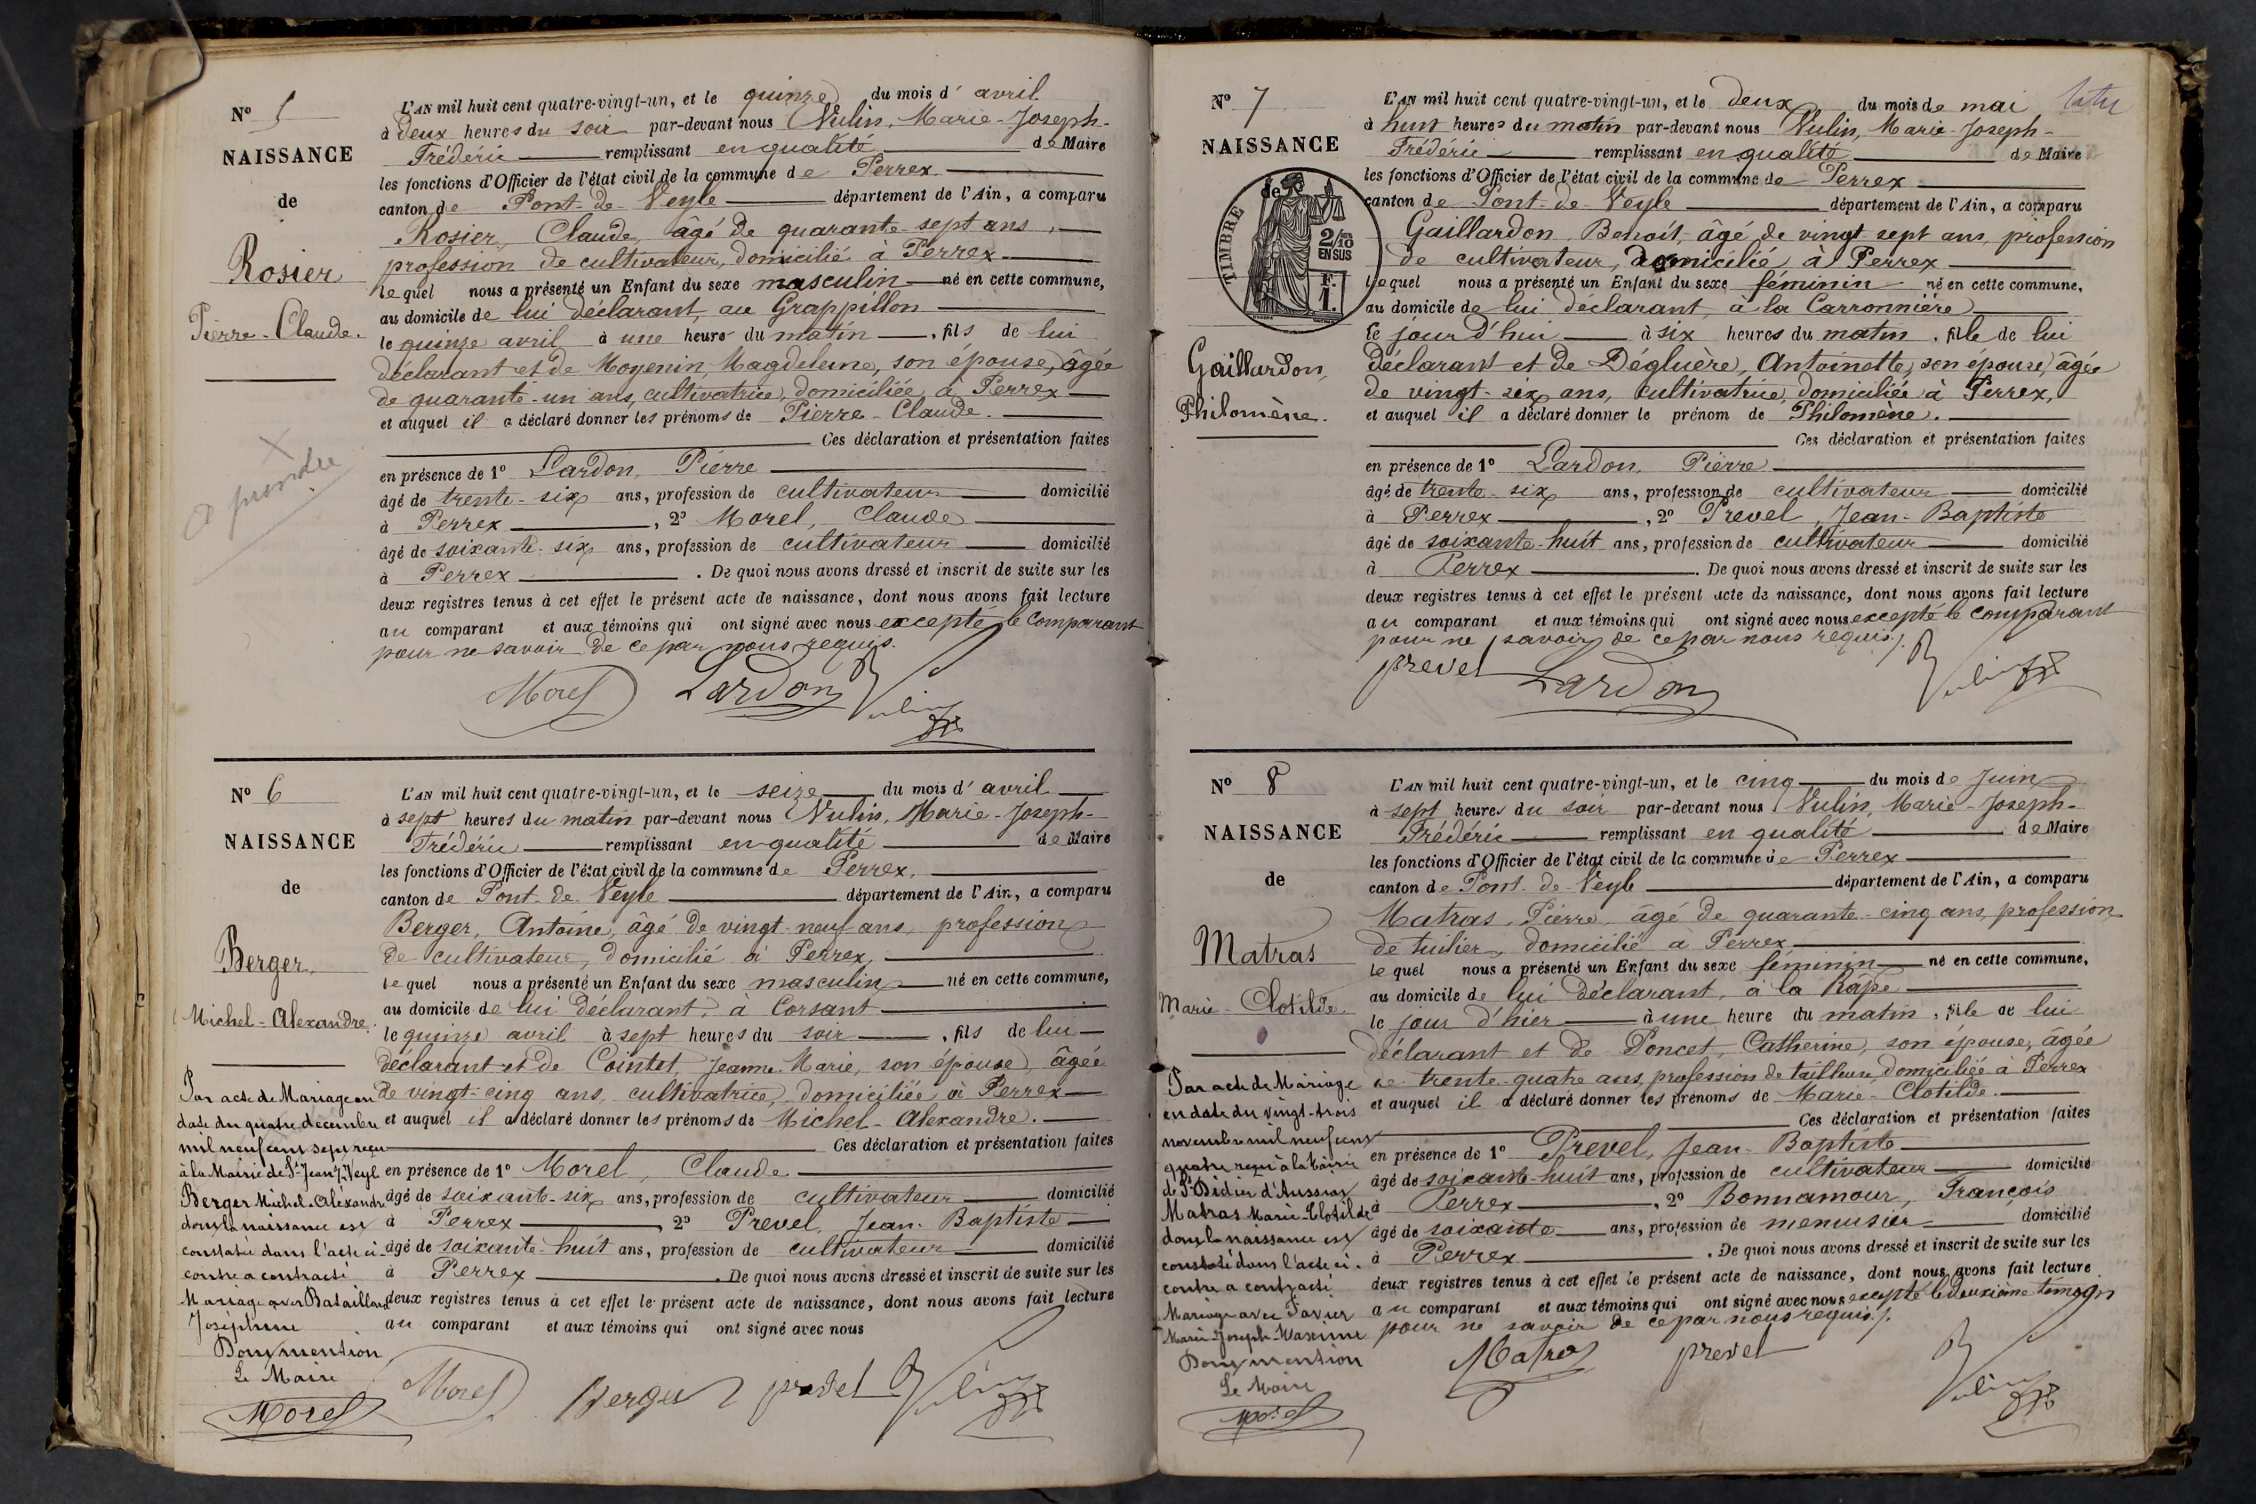 N° 5
NAISSANCE
de
Rosier
Pierre-Claude.
à prendre
L'AN mil huit cent quatre-vingt-un, et le quinze du mois d'avril
à deux heures du soir par-devant nous Vulin, Marie-Joseph-
Frédéric remplissant en qualité de Maire
les fonctions d'Officier de l'état civil de la commune de Perrex
canton de Pont-de-Veyle département de l'Ain, a comparu
Rosier, Claude, âgé de quarante-sept ans,
profession de cultivateur, domicilié à Perrex
lequel nous a présenté un Enfant du sexe masculin né en cette commune,
au domicile de lui déclarant, au Grappillon
le quinze avril à une heure du matin, fils de lui
déclarant et de Moyenin, Magdeleine, son épouse, âgée
de quarante-un ans, cultivatrice, domiciliée à Perrex
et auquel il a déclaré donner les prénoms de Pierre-Claude.
Ces déclaration et présentation faites
en présence de 1° Lardon, Pierre
âgé de trente-six ans, profession de cultivateur domicilié
à Perrex, 2° Morel, Claude
âgé de soixante-six ans, profession de cultivateur domicilié
à Perrex. De quoi nous avons dressé et inscrit de suite sur les
deux registres tenus à cet effet le présent acte de naissance, dont nous avons fait lecture
au comparant et aux témoins qui ont signé avec nous excepté le comparant
pour ne savoir de ce par nous requis.
Morel Lardon Vulin
N° 6
NAISSANCE
de
Berger
Michel-Alexandre.
Par acte de Mariage en
date du quatre décembre
mil neuf cent sept reçu
à la Mairie de St Jean s/ Veyle
Berger Michel-Alexandre
dont la naissance est
constatée dans l'acte ci-
contre a contracté
Mariage avec Bataillard
Joséphine
Dont mention
Le Maire
Morel
L'AN mil huit cent quatre-vingt-un, et le seize du mois d'avril
à sept heures du matin par-devant nous Vulin, Marie-Joseph-
Frédéric remplissant en qualité de Maire
les fonctions d'Officier de l'état civil de la commune de Perrex,
canton de Pont-de-Veyle département de l'Ain, a comparu
Berger, Antoine, âgé de vingt-neuf ans, profession
de cultivateur, domicilié à Perrex,
lequel nous a présenté un Enfant du sexe masculin né en cette commune,
au domicile de lui déclarant, à Corsant
le quinze avril à sept heures du soir, fils de lui
déclarant et de Cointet, Jeanne-Marie, son épouse, âgée
de vingt-cinq ans, cultivatrice, domiciliée à Perrex
et auquel il a déclaré donner les prénoms de Michel-Alexandre.
Ces déclaration et présentation faites
en présence de 1° Morel, Claude
âgé de soixante-six ans, profession de cultivateur domicilié
à Perrex 2° Prevel, Jean-Baptiste
âgé de soixante-huit ans, profession de cultivateur domicilié
à Perrex. De quoi nous avons dressé et inscrit de suite sur les
deux registres tenus à cet effet le présent acte de naissance, dont nous avons fait lecture
au comparant et aux témoins qui ont signé avec nous
Morel Berger prevel Vulin
N° 7
NAISSANCE
de
TIMBRE
2/10
EN SUS
F.
1.
Gaillardon,
Philomène.
L'AN mil huit cent quatre-vingt-un, et le deux du mois de mai
à huit heures du matin par-devant nous Vulin, Marie-Joseph-
Frédéric remplissant en qualité de Maire
les fonctions d'Officier de l'état civil de la commune de Perrex
canton de Pont-de-Veyle département de l'Ain, a comparu
Gaillardon, Benoît, âgé de vingt-sept ans, profession
de cultivateur, domicilié à Perrex
lequel nous a présenté un Enfant du sexe féminin né en cette commune,
au domicile de lui déclarant, à la Carronnière
le jour d'hui à six heures du matin, fille de lui
déclarant et de Dégluère, Antoinette, son épouse, âgée
de vingt-six ans, cultivatrice, domiciliée à Perrex,
et auquel il a déclaré donner le prénom de Philomène.
Ces déclaration et présentation faites
en présence de 1° Lardon, Pierre
âgé de trente-six ans, profession de cultivateur domicilié
à Perrex, 2° Prevel, Jean-Baptiste
âgé de soixante-huit ans, profession de cultivateur domicilié
à Perrex. De quoi nous avons dressé et inscrit de suite sur les
deux registres tenus à cet effet le présent acte de naissance, dont nous avons fait lecture
au comparant et aux témoins qui ont signé avec nous excepté le comparant
pour ne savoir de ce par nous requis.
prevel Lardon Vulin
N° 8
NAISSANCE
de
Matras
Marie-Clotilde.
Par acte de Mariage
en date du vingt-trois
novembre mil neuf cent
quatre reçu à la Mairie
de St Didier d'Aussiat
Matras Marie Clotilde
dont la naissance est
constatée dans l'acte ci-
contre a contracté
Mariage avec Favier
Marie-Joseph-Maxime
Dont mention
Le Maire
Morel
L'AN mil huit cent quatre-vingt-un, et le cinq du mois de Juin
à sept heures du soir par-devant nous Vulin, Marie-Joseph-
Frédéric remplissant en qualité de Maire
les fonctions d'Officier de l'état civil de la commune de Perrex
canton de Pont-de-Veyle département de l'Ain, a comparu
Matras, Pierre, âgé de quarante-cinq ans, profession
de tuilier, domicilié à Perrex
lequel nous a présenté un Enfant du sexe féminin né en cette commune,
au domicile de lui déclarant, à la Râpe
le jour d'hier à une heure du matin, fille de lui
déclarant et de Poncet, Catherine, son épouse, âgée
de trente-quatre ans, profession de tailleuse, domiciliée à Perrex
et auquel il a déclaré donner les prénoms de Marie-Clotilde.
Ces déclaration et présentation faites
en présence de 1° Prevel, Jean-Baptiste
âgé de soixante-huit ans, profession de cultivateur domicilié
à Perrex, 2° Bonnamour, François
âgé de soixante ans, profession de menuisier domicilié
à Perrex. De quoi nous avons dressé et inscrit de suite sur les
deux registres tenus à cet effet le présent acte de naissance, dont nous avons fait lecture
au comparant et aux témoins qui ont signé avec nous excepté le deuxième témoin
pour ne savoir de ce par nous requis.
Matras prevel Vulin